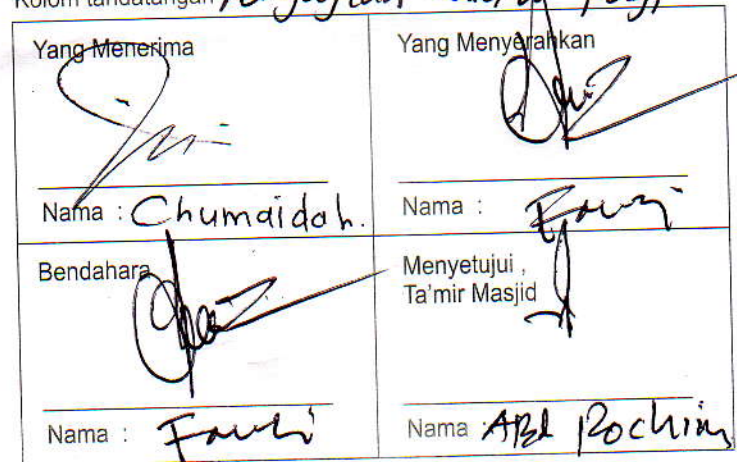 Kolom tandatangan
Yang Menerima
Nama : Chumaidah.
Yang Menyerahkan
Nama : Fauzi
Bendahara
Nama : Fauzi
Menyetujui ,
Ta'mir Masjid
Nama : ABd Rochim